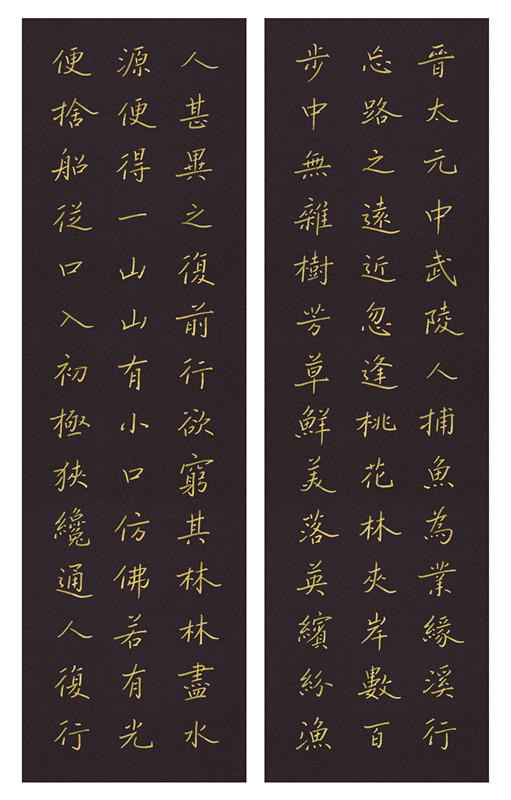 晉太元中武陵人捕魚為業緣溪行
忘路之遠近忽逢桃花林夾岸數百
步中無雜樹芳草鮮美落英繽紛漁
人甚異之復前行欲窮其林林盡水
源便得一山山有小口仿佛若有光
便捨船從口入初極狹纔通人復行